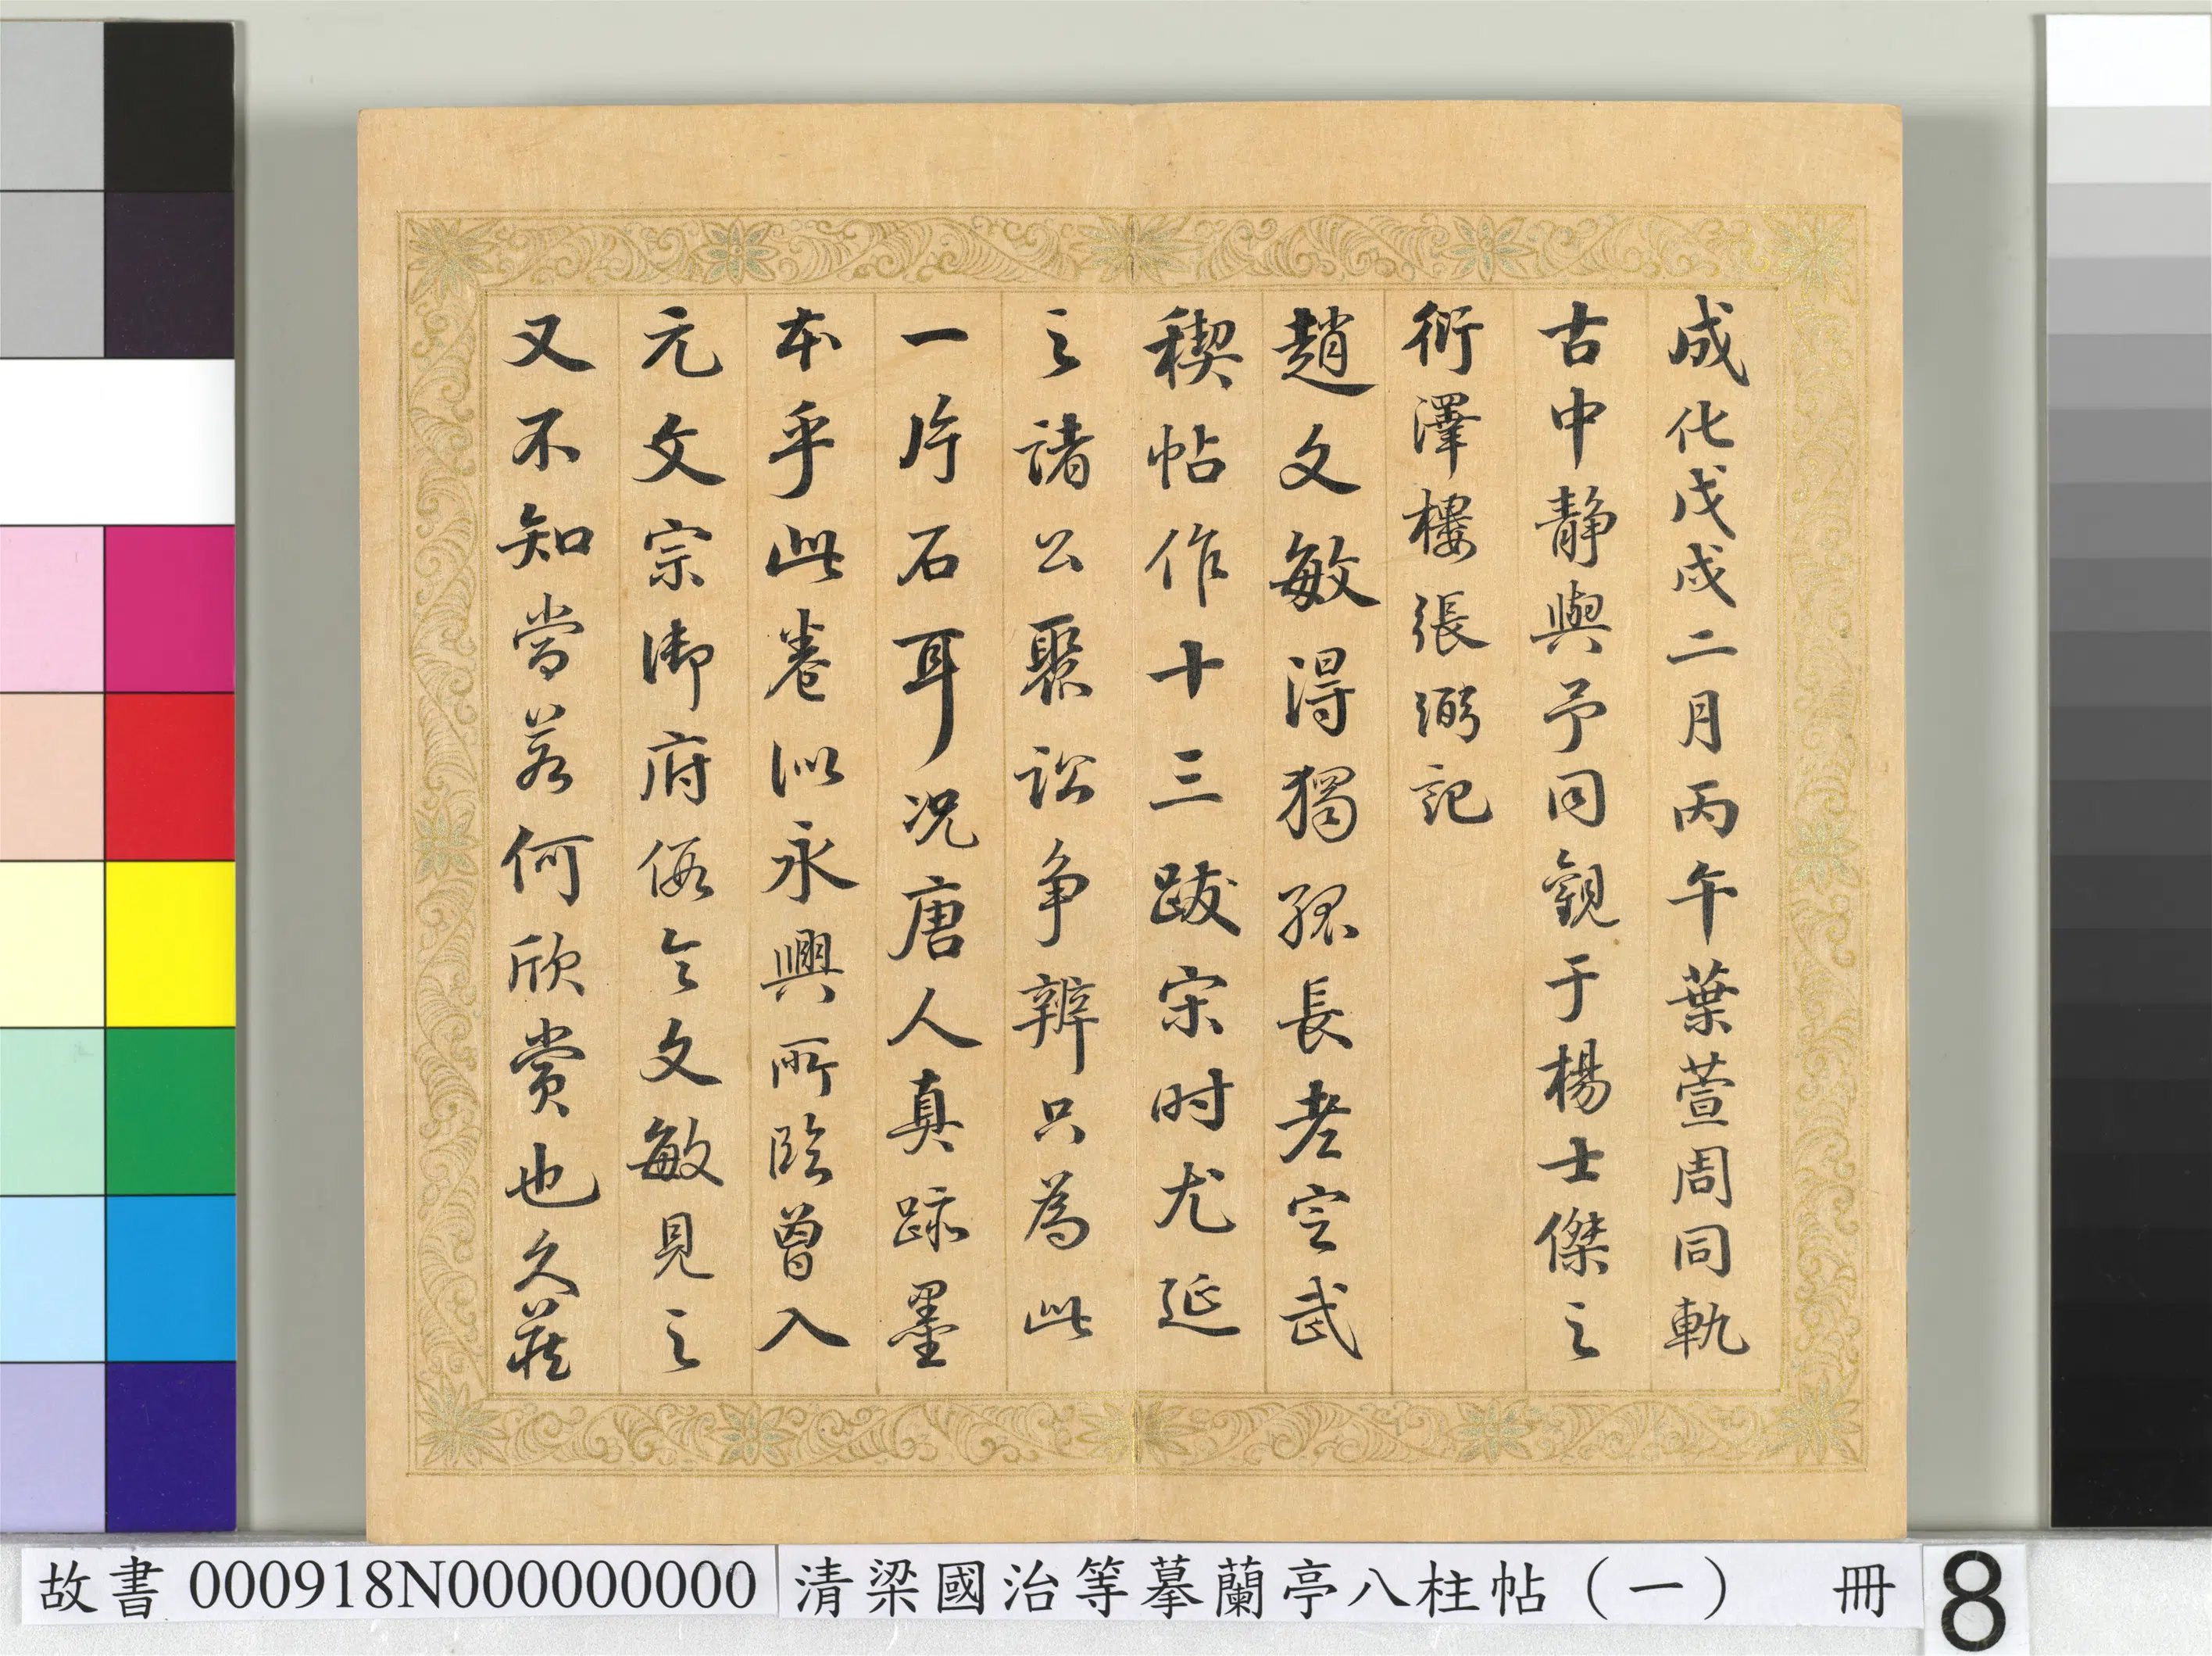 成化戊戌二月丙午葉萱周同軌
古中靜與予同觀于楊士傑之
衍澤樓張弼記
趙文敏得獨孤長老定武
稧帖作十三跋宋时尤延
之諸公聚訟争辨只為此
一片石耳況唐人真跡墨
本乎此卷似永興所臨曾入
元文宗御府假令文敏見之
又不知當若何欣賞也久藏
故書 000918N000000000
清梁國治等摹蘭亭八柱帖（一） 冊
8